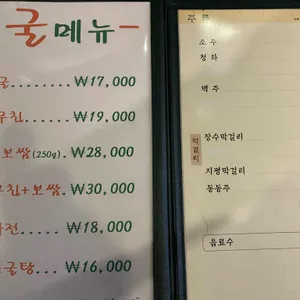 굴메뉴
굴........₩17,000
무친...₩19,000
보쌈(250g).₩28,000
무친+보쌈.₩30,000
파전.......₩18,000
굴탕.....₩16,000
주류
소주
청하
맥주
막걸리
장수막걸리
지평막걸리
동동주
음료수